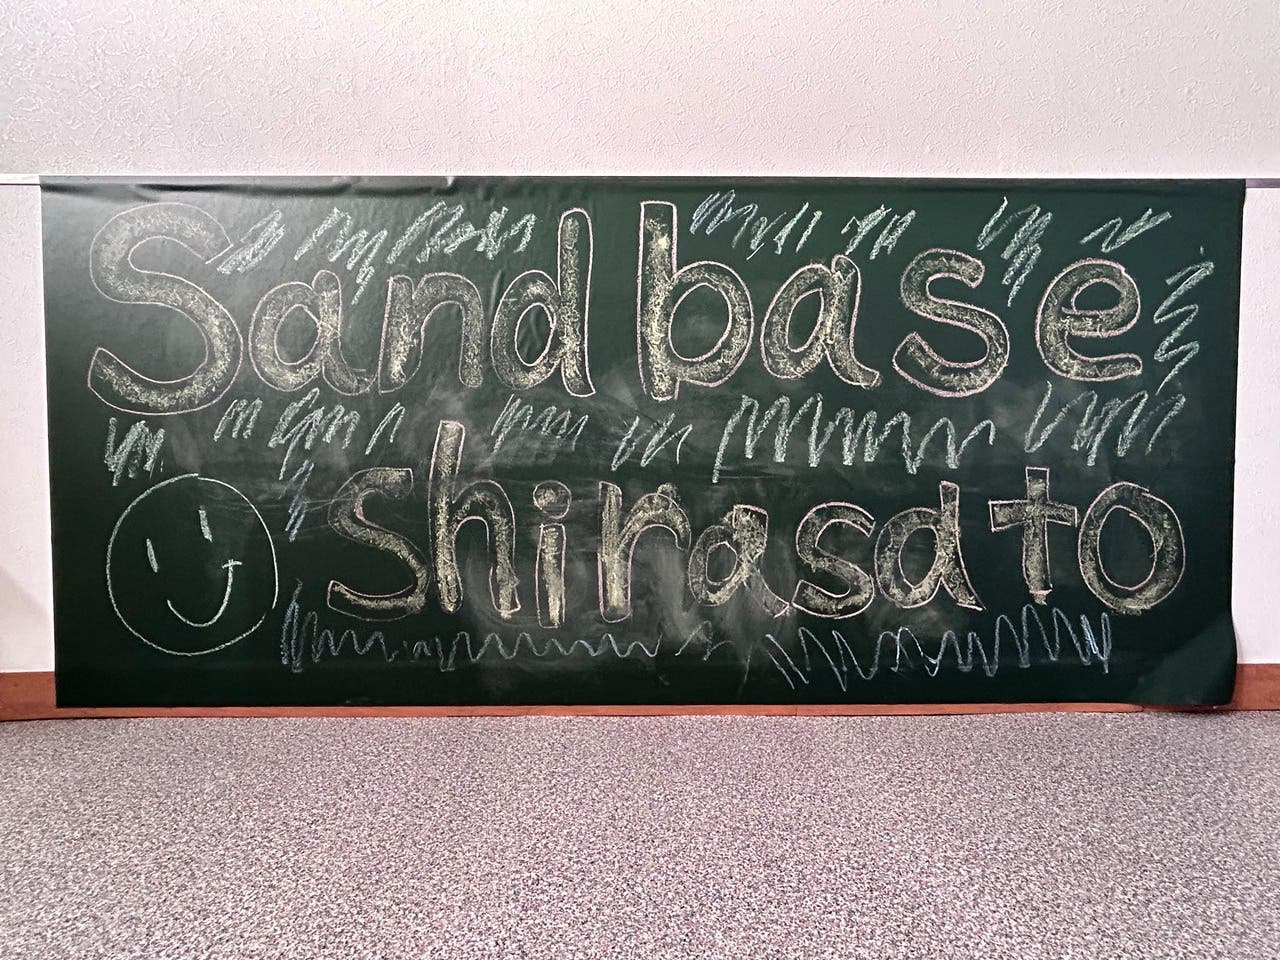 Sand base
shirasato